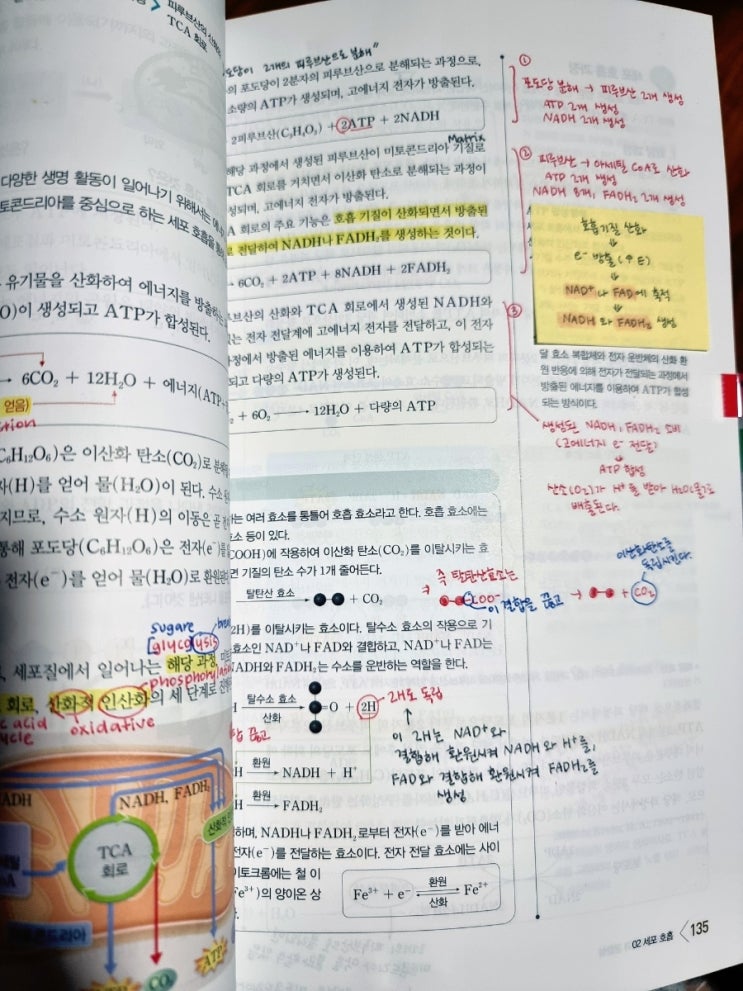 피루브산의 산화와
TCA 회로
다양한 생명 활동이 일어나기 위해서는 에너
토콘드리아를 중심으로 하는 세포 호흡을 통
유기물을 산화하여 에너지를 방출하는
O)이 생성되고 ATP가 합성된다.
→ 6CO₂ + 12H₂O + 에너지(ATP+
얻음)
C₆H₁₂O₆)은 이산화 탄소(CO₂)로 분해
자(H)를 얻어 물(H₂O)이 된다. 수소 원
지므로, 수소 원자(H)의 이동은 곧 전
통해 포도당(C₆H₁₂O₆)은 전자(e⁻)를
전자(e⁻)를 얻어 물(H₂O)로 환원된
sugare
glycolysis
세포질에서 일어나는 해당 과정,
phosphorylation
회로, 산화적 인산화의 세 단계로 진행
c acid
cycle
oxidative
NADH
NADH, FADH₂
TCA
회로
ATP
CO₂
포도당이 2개의 피루브산으로 분해"
의 포도당이 2분자의 피루브산으로 분해되는 과정으로,
소량의 ATP가 생성되며, 고에너지 전자가 방출된다.
2피루브산(C₃H₄O₃) + 2ATP + 2NADH
Matrix
해당 과정에서 생성된 피루브산이 미토콘드리아 기질로
TCA 회로를 거치면서 이산화 탄소로 분해되는 과정이
성되며, 고에너지 전자가 방출된다.
A 회로의 주요 기능은 호흡 기질이 산화되면서 방출된
로 전달하여 NADH나 FADH₂를 생성하는 것이다.
→ 6CO₂ + 2ATP + 8NADH + 2FADH₂
브산의 산화와 TCA 회로에서 생성된 NADH와
있는 전자 전달계에 고에너지 전자를 전달하고, 이 전자
과정에서 방출된 에너지를 이용하여 ATP가 합성되는
되고 다량의 ATP가 생성된다.
+ 6O₂ → 12H₂O + 다량의 ATP
하는 여러 효소를 통틀어 호흡 효소라고 한다. 호흡 효소에는
효소 등이 있다.
COOH)에 작용하여 이산화 탄소(CO₂)를 이탈시키는 효
면 기질의 탄소 수가 1개 줄어든다.
탈탄산 효소
+ CO₂
2H)를 이탈시키는 효소이다. 탈수소 효소의 작용으로 기
효소인 NAD⁺나 FAD와 결합하고, NAD⁺나 FAD는
NADH와 FADH₂는 수소를 운반하는 역할을 한다.
탈수소 효소
산화
O + 2H
끊고
H 환원 → NADH + H⁺
H 환원 → FADH₂
하며, NADH나 FADH₂로부터 전자(e⁻)를 받아 에너
전자(e⁻)를 전달하는 효소이다. 전자 전달 효소에는 사이
이토크롬에는 철 이
Fe³⁺)의 양이온 상
Fe³⁺ + e⁻ 환원 산화 Fe²⁺
①
포도당 분해 → 피루브산 2개 생성
ATP 2개 생성
NADH 2개 생성
②
피루브산 → 아세틸 CoA로 산화
ATP 2개 생성
NADH 8개, FADH₂ 2개 생성
호흡기질 산화
↓
e⁻ 방출 (↑E)
↓
NAD⁺나 FAD에 축적
↓
NADH 와 FADH₂ 생성
③
달 효소 복합체와 전자 운반체의 산화 환
원 반응에 의해 전자가 전달되는 과정에서
방출된 에너지를 이용하여 ATP가 합성
되는 방식이다.
생성된 NADH, FADH₂ 소비
(고에너지 e⁻ 전달)
↓
ATP 합성
산소(O₂)가 H⁺를 받아 H₂O(물)로
배출된다.
즉 탈탄산효소는
COO⁻
이 결합을 끊고
→ + CO₂
이산화탄소를
독립시킨다.
2H로 독립
↑
이 2H는 NAD⁺와
결합해 환원시켜 NADH와 H⁺를,
FAD와 결합해 환원시켜 FADH₂를
생성
02 세포 호흡 135